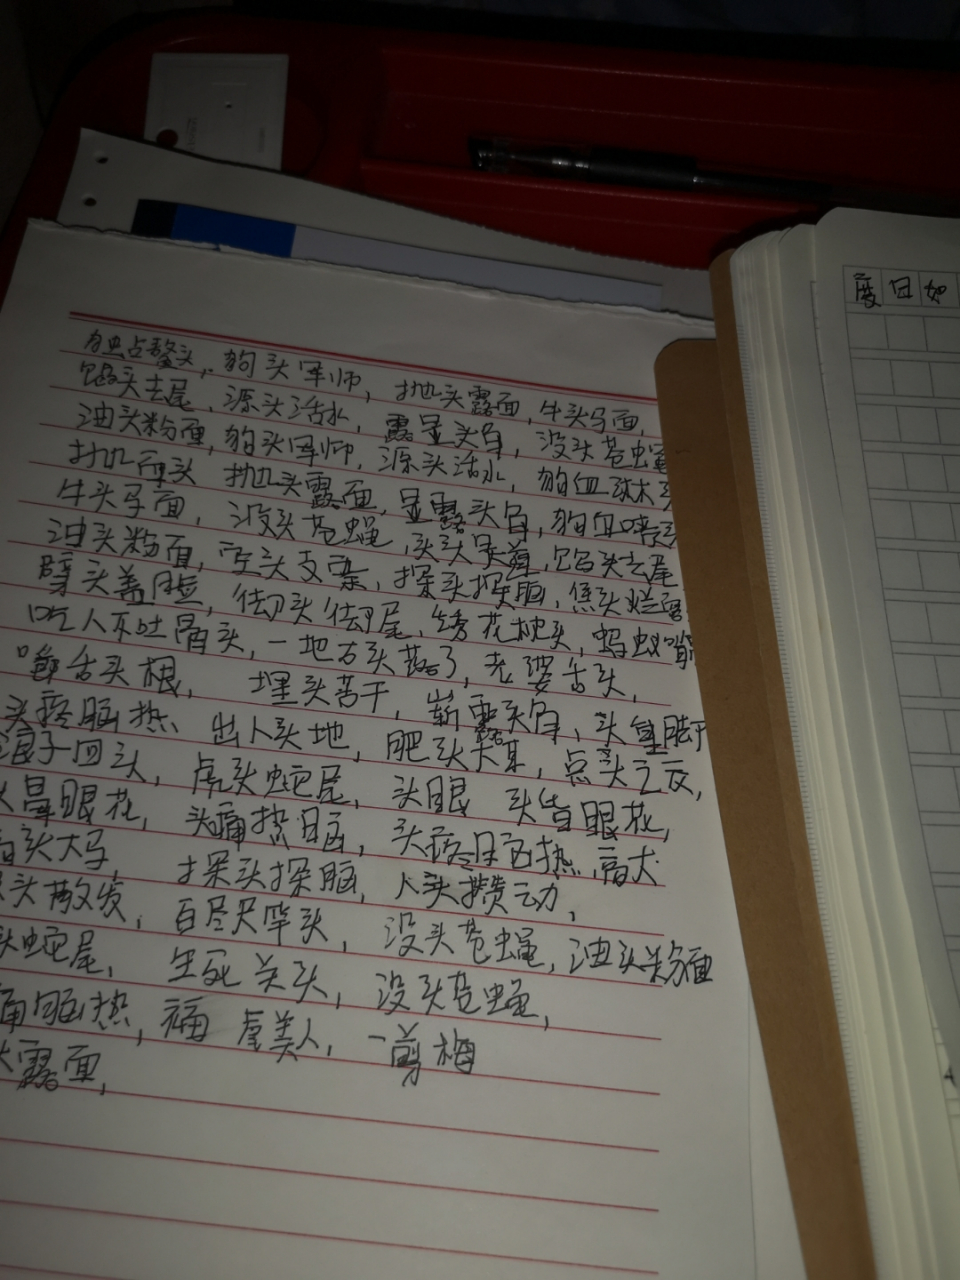 独占鳌头,狗头军师,抛头露面,牛头马面,
掐头去尾,源头活水,露显头角,没头苍蝇
油头粉面,狗头军师,源头活水,狗血淋头
抛头 抛头露面,显露头角,狗血喷头
牛头马面,没头苍蝇,头头是道,掐头去尾
油头粉面,探头探脑,焦头烂额
劈头盖脸,彻头彻尾,绣花枕头,蚂蚁啃
吃人不吐骨头,一地石头落了,老婆舌头,
嚼舌头根,埋头苦干,崭露头角,头重脚
头疼脑热,出人头地,肥头大耳,点头之交,
浪子回头,虎头蛇尾,头眼 头昏眼花,
头晕眼花,头痛热脑,头疼脑热,高大
高头大马,探头探脑,人头攒动,
头散发,百尽尺竿头,没头苍蝇,油头粉面
头蛇尾,生死关头,没头苍蝇,
痛脑热,福 虞美人,一剪梅
头露面,
度日如